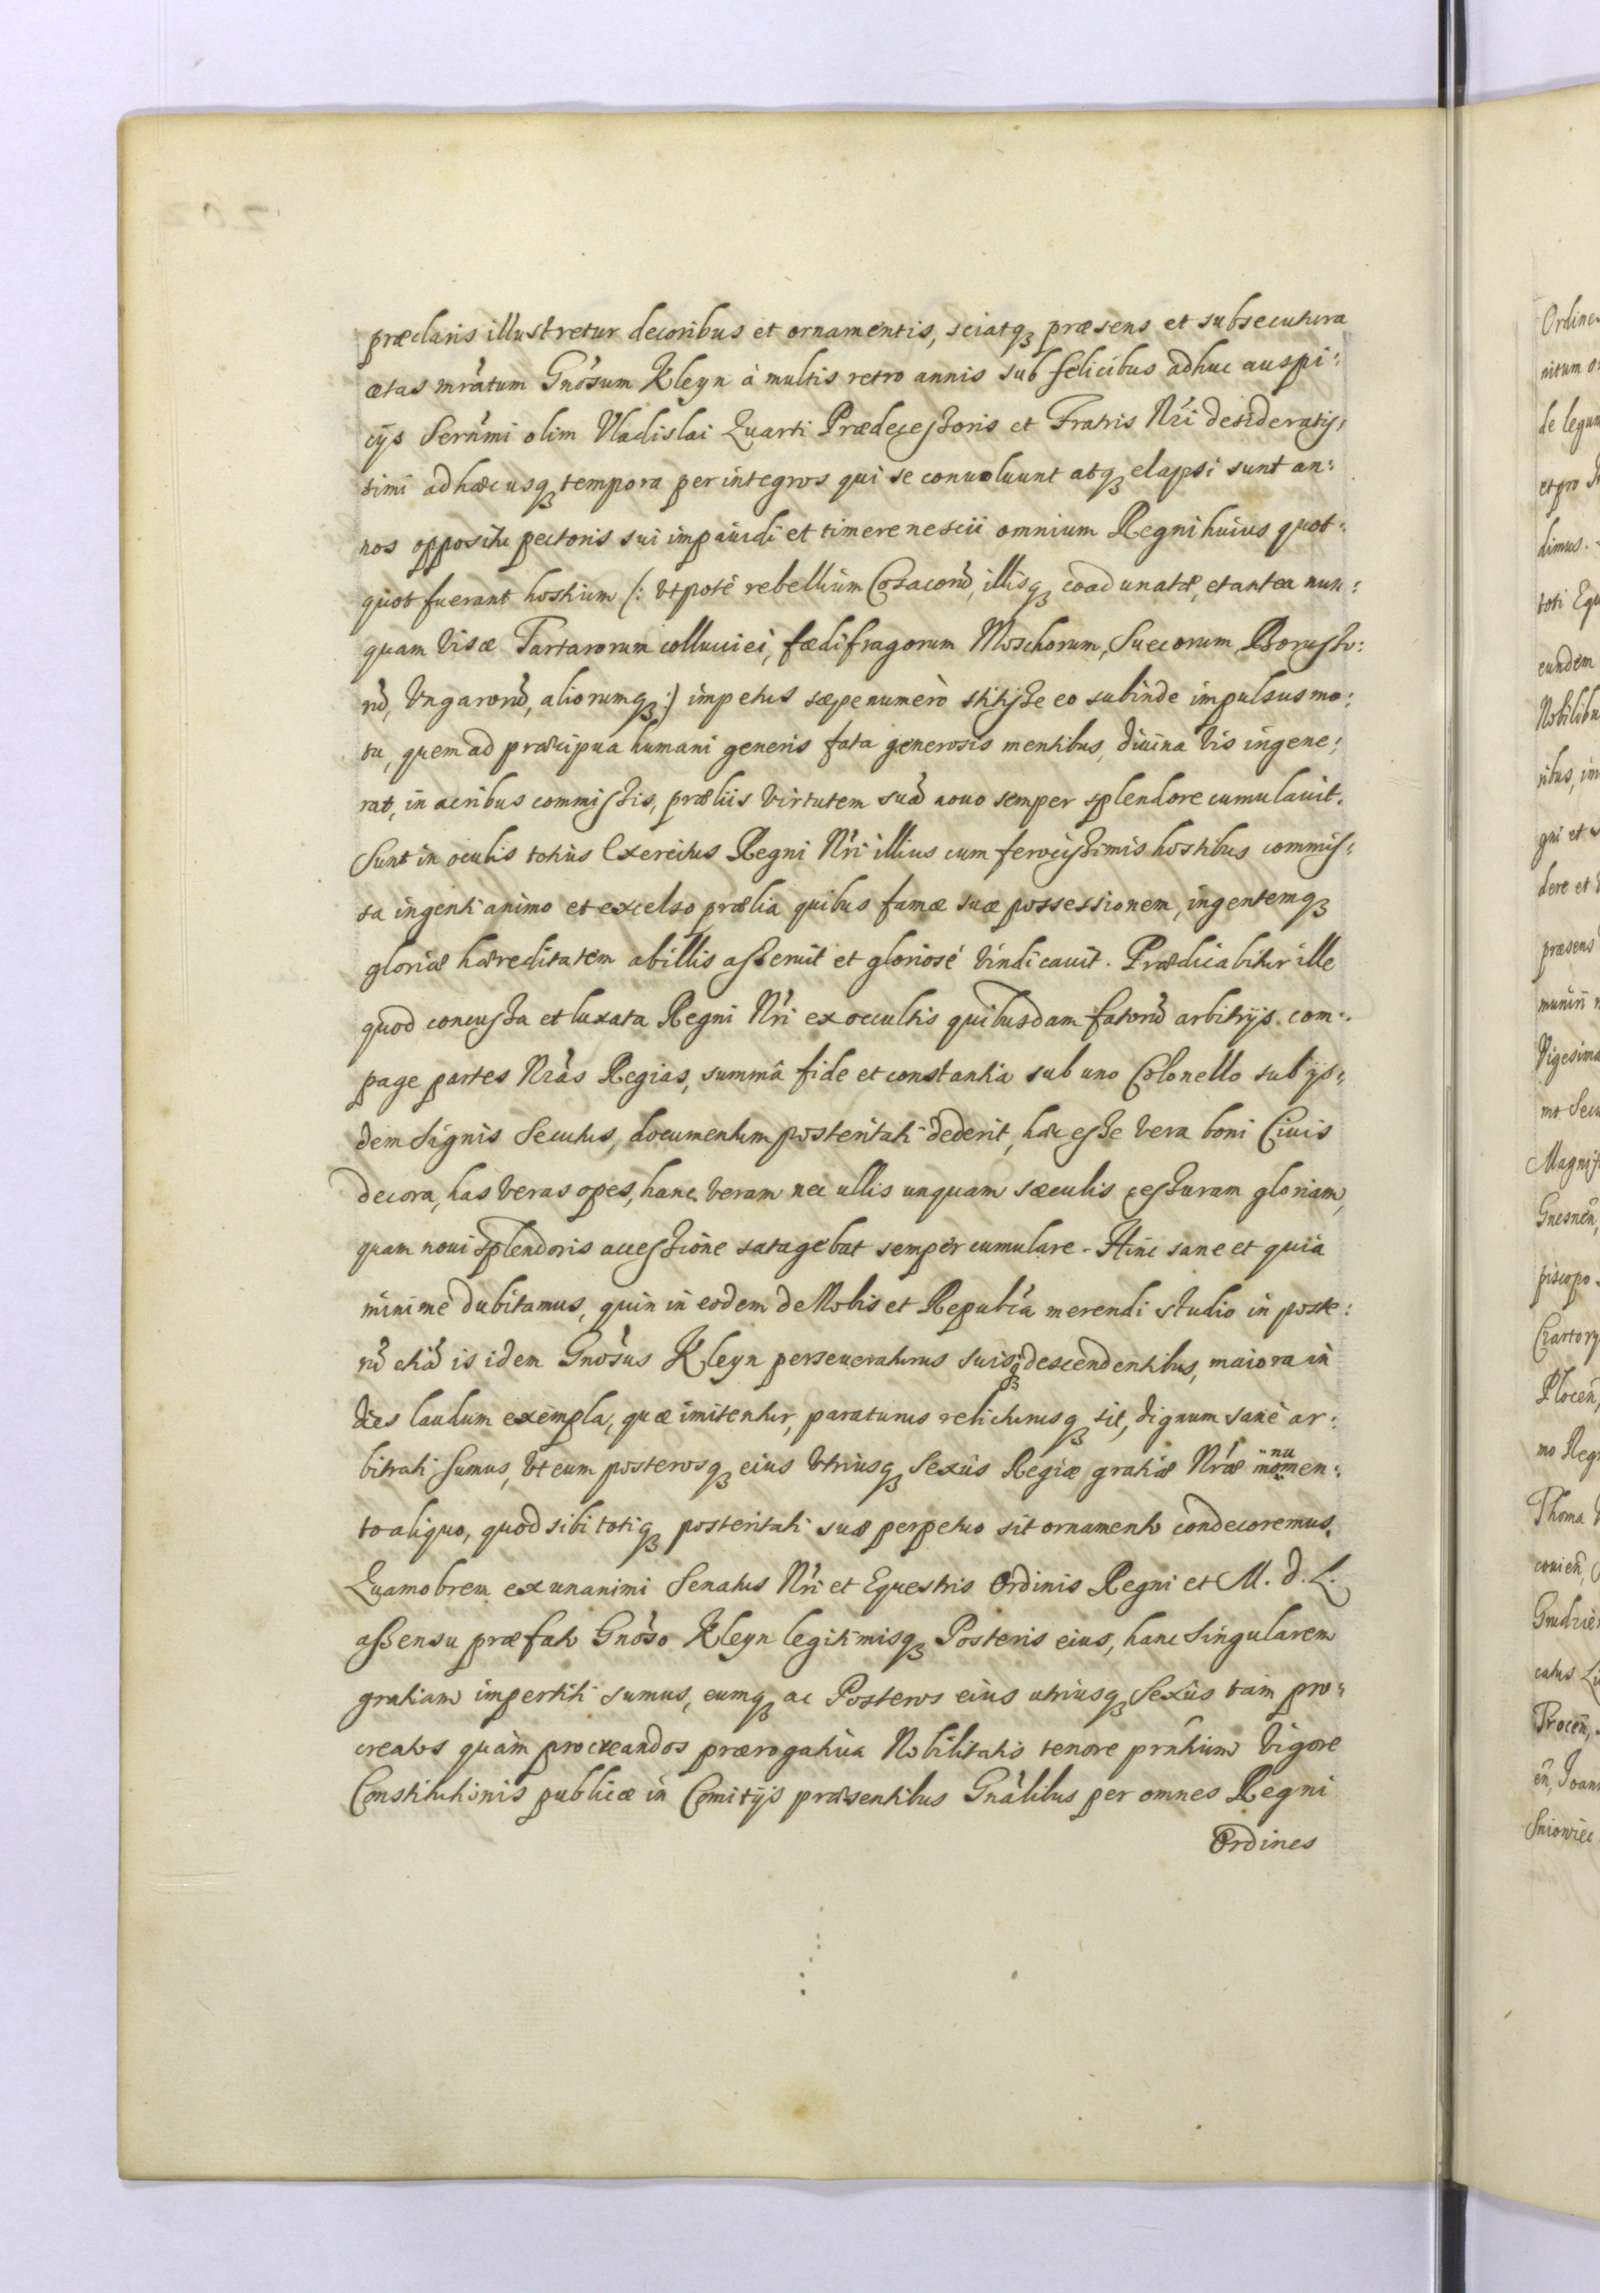 præclaris illustretur decoribus et ornamentis, sciatq præsens et subsecutura
ætas mrãtum Gnõsum Kleyn à multis retro annis sub felicibus adhuc auspi:
cÿs Sernm̃i olim Vladislai Quarti Prædecessoris et Fratris Nri desideratis:
simi ad hæcusq tempora per integros qui se conuoluunt atq elapsi sunt an:
nos oppositu pectoris sui impauidi et timere nescii omnium Regni huius quot:
quot fuerant hostium (: vtpotè rebellium Cosacorũ, illisq coadunatæ, et antea nun:
quam visæ Tartarorum colluuiei, fædifragorum Moschorum, Suecorum, Borusso:
rũ, Vngarorũ, aliorumq :) impetus sæpenumerò stitisse eo subinde impulsus mo:
tu, quem ad præcipua humani generis fata generosis mentibus, diuina vis ingene:
rat, in acribus commissis, præliis virtutem suã nouo semper splendore cumulauit.
Sunt in oculis totius Exercitus Regni Nri illius cum ferocissimis hostibus commis:
sa ingenti animo et excelso prælia quibus famæ suæ possessionem, ingentemq
gloriæ hæreditatem ab illis asseruit et gloriosè vindicauit. Prædicabitur ille
quod concussa et luxata Regni Nri ex occultis quibusdam fatorũ arbitrÿs com:
page partes Nras Regias, summâ fide et constantia sub uno Colonello sub ÿs:
dem signis secutus, documentum posteritati dederit, hæc esse vera boni Ciuis
decora, has veras opes, hanc veram nec ullis unquam sæculis cessuram gloriam,
quam noui splendoris accessione satagebat semper cumulare. Hinc sane et quia
minimè dubitamus, quin in eodem de Nobis et Republca merendi studio in poste:
rũ etiã is idem Gnõsus Kleyn perseueraturus suisq descendentibus, maiora in
dies laudum exempla, quæ imitentur, paraturus relicturusq sit, dignum sanè ar:
bitrati sumus, vt eum posterosq eius vtriusq sexus Regiæ gratiæ Nræ momen: nu
to aliquo, quod sibi totiq posteritati suæ perpetuo sit ornamento condecoremus.
Quamobrem ex unanimi Senatus Nri et Equestris Ordinis Regni et M. D. L.
assensu præfato Gnõso Kleyn legitimisq Posteris eius, hanc singularem
gratiam impertiti sumus, eumq ac Posteros eius utriusq sexus tam pro:
creatos quàm procreandos prærogatiua Nobilitatis tenore prñtium vigore
Constitutionis publicæ in Comitÿs præsentibus Gnãlibus per omnes Regni
Ordines